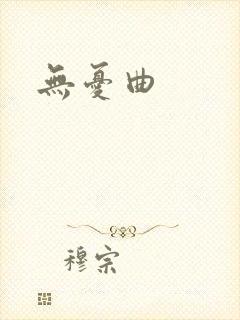 無憂曲
穆宗